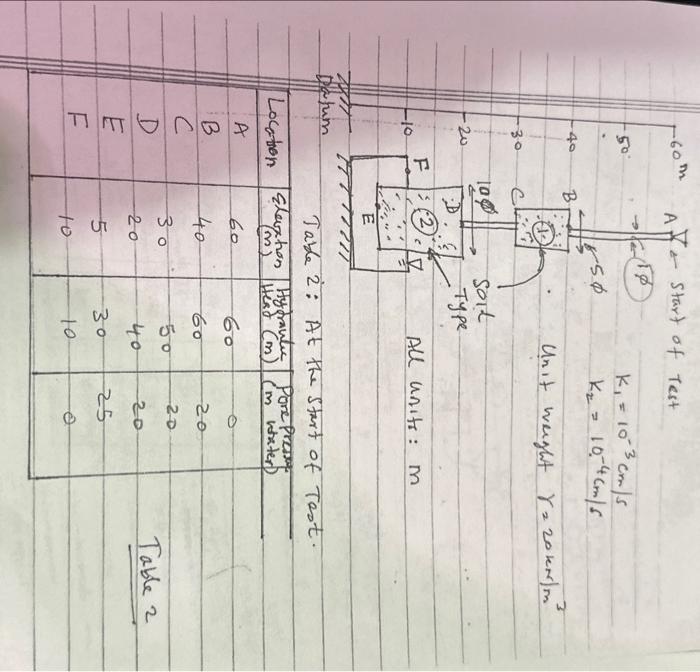 60 m A ← Start of Test
50 → 1φ ←
K₁ = 10⁻³ cm/s
K₂ = 10⁻⁴ cm/s
40 B 5φ
1
Unit weight γ = 20 kN/m³
30 C
Soil
Type
20 10φ D
2
10 F E
All units: m
Datum
Table 2: At the Start of Test.
Location Elevation (m) Hydraulic Head (m) Pore Pressure (m water)
A 60 60 0
B 40 60 20
C 30 50 20
D 20 40 20
E 5 30 25
F 10 10 0
Table 2